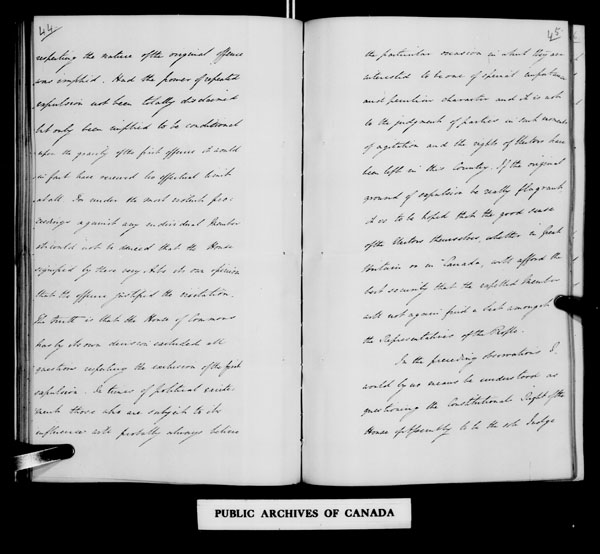 44
respecting the nature of the original offence
was implied. Had the power of repeated
expulsion not been totally disclaimed
but only been implied to be conditional
upon the gravity of the first offence it would
in fact have received no effectual limit
at all. For under the most violent pro-
ceedings against any individual Member
it could not be denied that the House
signified by these very Acts its own opinion
that the offence justified the resolution.
The truth is that the House of Commons
has by its own decision excluded all
questions respecting the conclusion of the first
expulsion. In times of political excite-
ment those who are subject to its
influence will probably always believe
45
the particular occasion in which they are
interested to be one of special importance
and peculiar character and it is not
to the judgment of parties in such moments
of agitation and the rights of Electors have
been left in this Country. If the original
ground of expulsion be really flagrant
it is to be hoped that the good sense
of the Electors themselves, whether in Great
Britain or in Canada, will afford the
best security that the expelled Member
will not again find a Seat amongst
the Representatives of the People.
In the preceding observations I
would by no means be understood as
questioning the Constitutional Right of the
House of Assembly to be the sole Judge
PUBLIC ARCHIVES OF CANADA